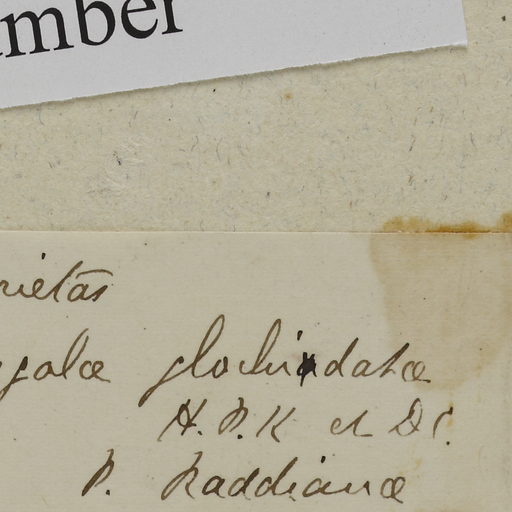 umber
rietas
ygalæ glochidatæ
H.B.K et DC.
P. Raddianæ